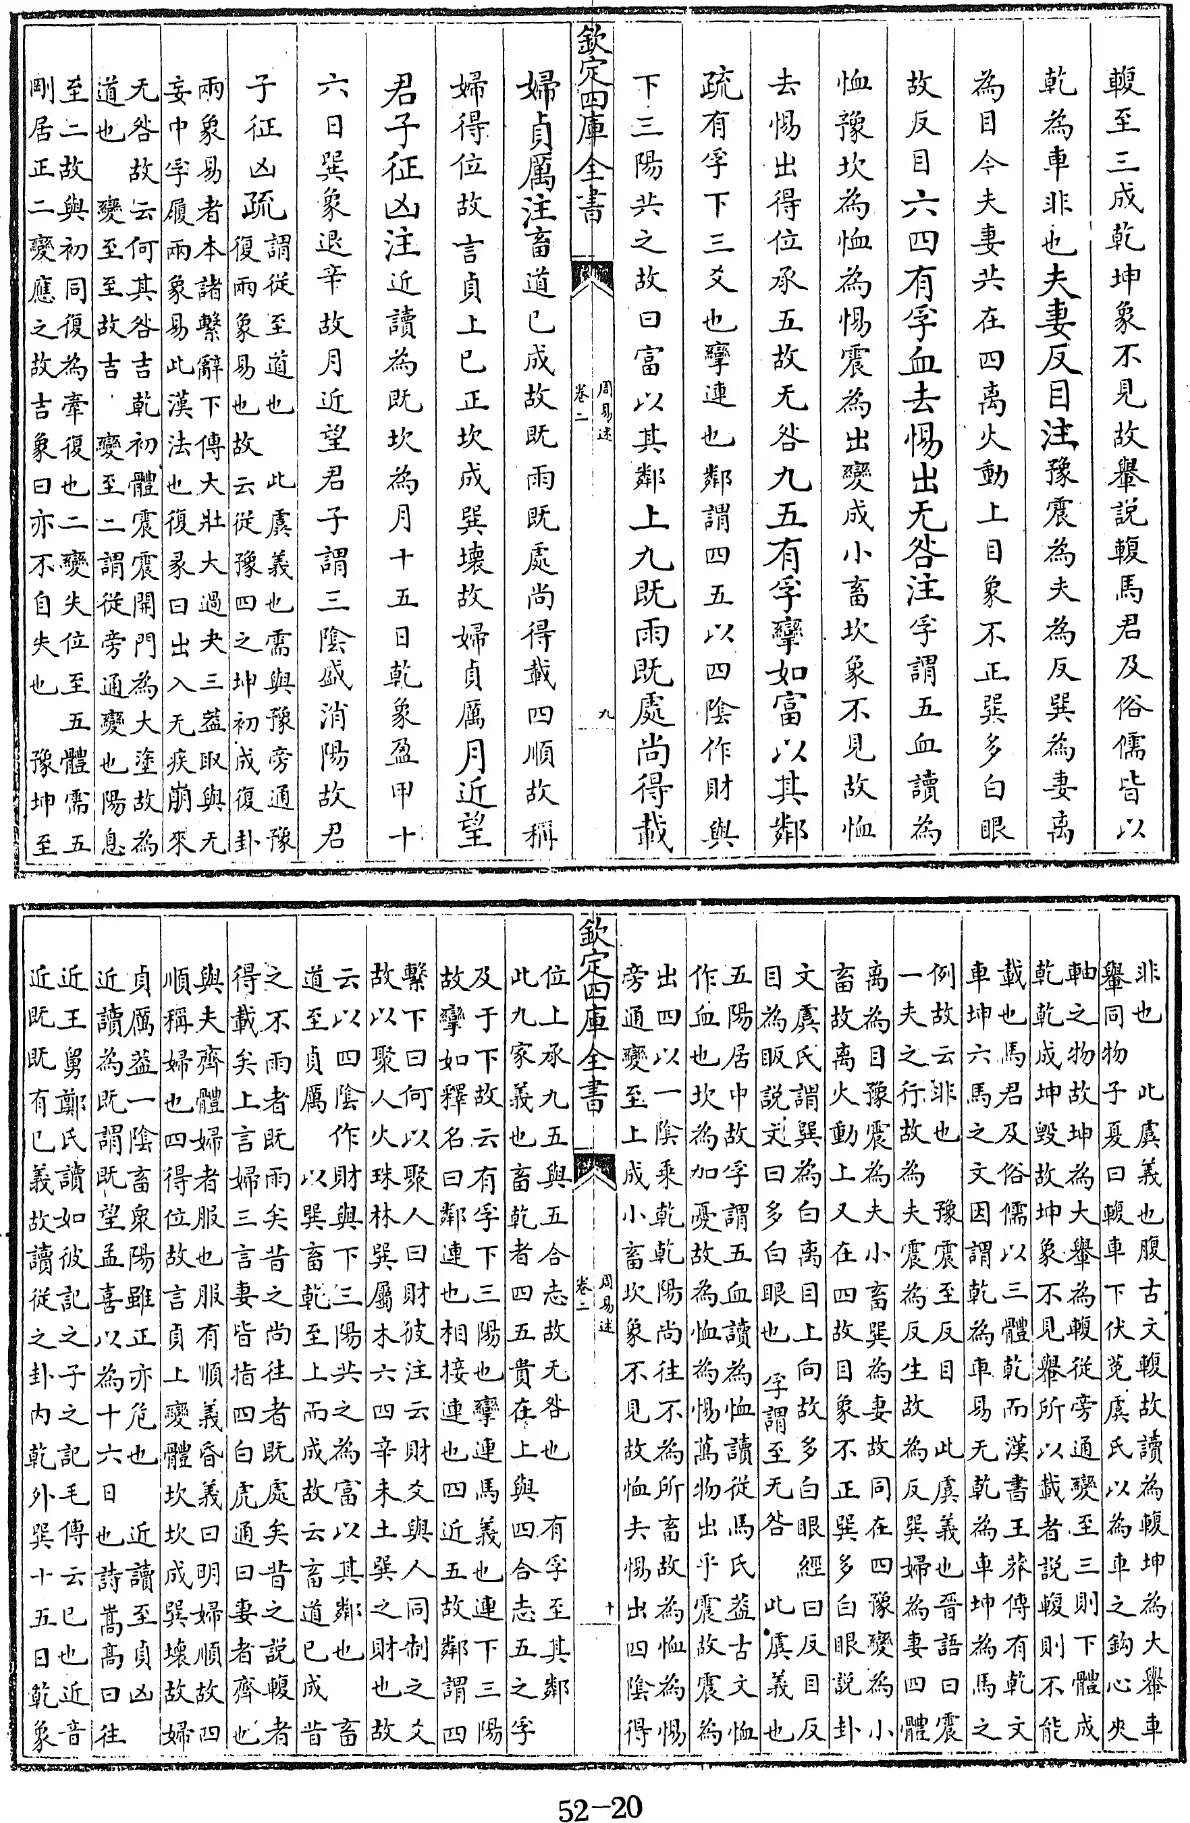 輹至三成乾坤象不見故轝説輹馬君及俗儒皆以
乾為車非也夫妻反目注豫震為夫為反巽為妻离
為目今夫妻共在四离火動上目象不正巽多白眼
故反目六四有孚血去惕出无咎注孚謂五血讀為
恤豫坎為恤為惕震為出變成小畜坎象不見故恤
去惕出得位承五故无咎九五有孚攣如富以其鄰
疏有孚下三爻也攣連也鄰謂四五以四陰作財與
下三陽共之故曰富以其鄰上九既雨既處尚得載
欽定四庫全書
周易述
卷二
九
婦貞厲注畜道已成故既雨既處尚得載四順故稱
婦得位故言貞上已正坎成巽壞故婦貞厲月近望
君子征凶注近讀為既坎為月十五日乾象盈甲十
六日巽象退辛故月近望君子謂三陰盛消陽故君
子征凶疏謂從至道也 此虞義也需與豫旁通豫
復兩象易也故云從豫四之坤初成復卦
兩象易者本諸繫辭下傳大壯大過夬三葢取與无
妄中孚履兩象易此漢法也復彖曰出入无疾崩來
无咎故云何其咎吉乾初體震震開門為大塗故為
道也 變至至故吉 變至二謂從旁通變也陽息
至二故與初同復為牽復也二變失位至五體需五
剛居正二變應之故吉象曰亦不自失也 豫坤至
非也 此虞義也腹古文輹故讀為輹坤為大轝車
轝同物子夏曰輹車下伏菟虞氏以為車之鈎心夾
軸之物故坤為大轝為輹從旁通變至三則下體成
乾乾成坤毀故坤象不見轝所以載者說輹則不能
載也馬君及俗儒以三體乾而漢書王莽傳有乾文
車坤六馬之文因謂乾為車易无乾為車坤為馬之
例故云非也 豫震至反目 此虞義也晉語曰震
一夫之行故為夫震為反生故為反巽婦為妻四體
离為目豫震為夫小畜巽為妻故同在四豫變為小
畜故离火動上又在四故目象不正巽多白眼說卦
文虞氏謂巽為白离目上向故多白眼經曰反目反
目為眅説文曰多白眼也 孚謂至无咎 此虞義也
五陽居中故孚謂五血讀為恤讀從馬氏葢古文恤
作血也坎為加憂故為恤為惕萬物出乎震故震為
出四以一陰乘乾乾陽尚往不為所畜故為恤為惕
旁通變至上成小畜坎象不見故恤夫惕出四陰得
欽定四庫全書
周易述
卷二
十
位上承九五與五合志故无咎也 有孚至其鄰
此九家義也畜乾者四五貴在上與四合志五之孚
及于下故云有孚下三陽也攣連馬義也連下三陽
故攣如釋名曰鄰連也相接連也四近五故鄰謂四
繫下曰何以聚人曰財彼注云財爻與人同制之爻
故以聚人火珠林巽屬木六四辛未土巽之財也故
云以四陰作財與下三陽共之為富以其鄰也 畜
道至貞厲 以巽畜乾至上而成故云畜道已成 昔
之不雨者既雨矣昔之尚往者既處矣昔之說輹者
得載矣上言婦三言妻皆指四白虎通曰妻者齊也
與夫齊體婦者服也服有順義昏義曰明婦順故四
順稱婦也四得位故言貞上變體坎坎成巽壞故婦
貞厲葢一陰畜衆陽雖正亦危也 近讀至貞凶
近讀為既謂既望孟喜以為十六日也詩嵩高曰往
近王舅鄭氏讀如彼記之子之記毛傳云已也近音
近既既有已義故讀從之卦内乾外巽十五日乾象
52-20